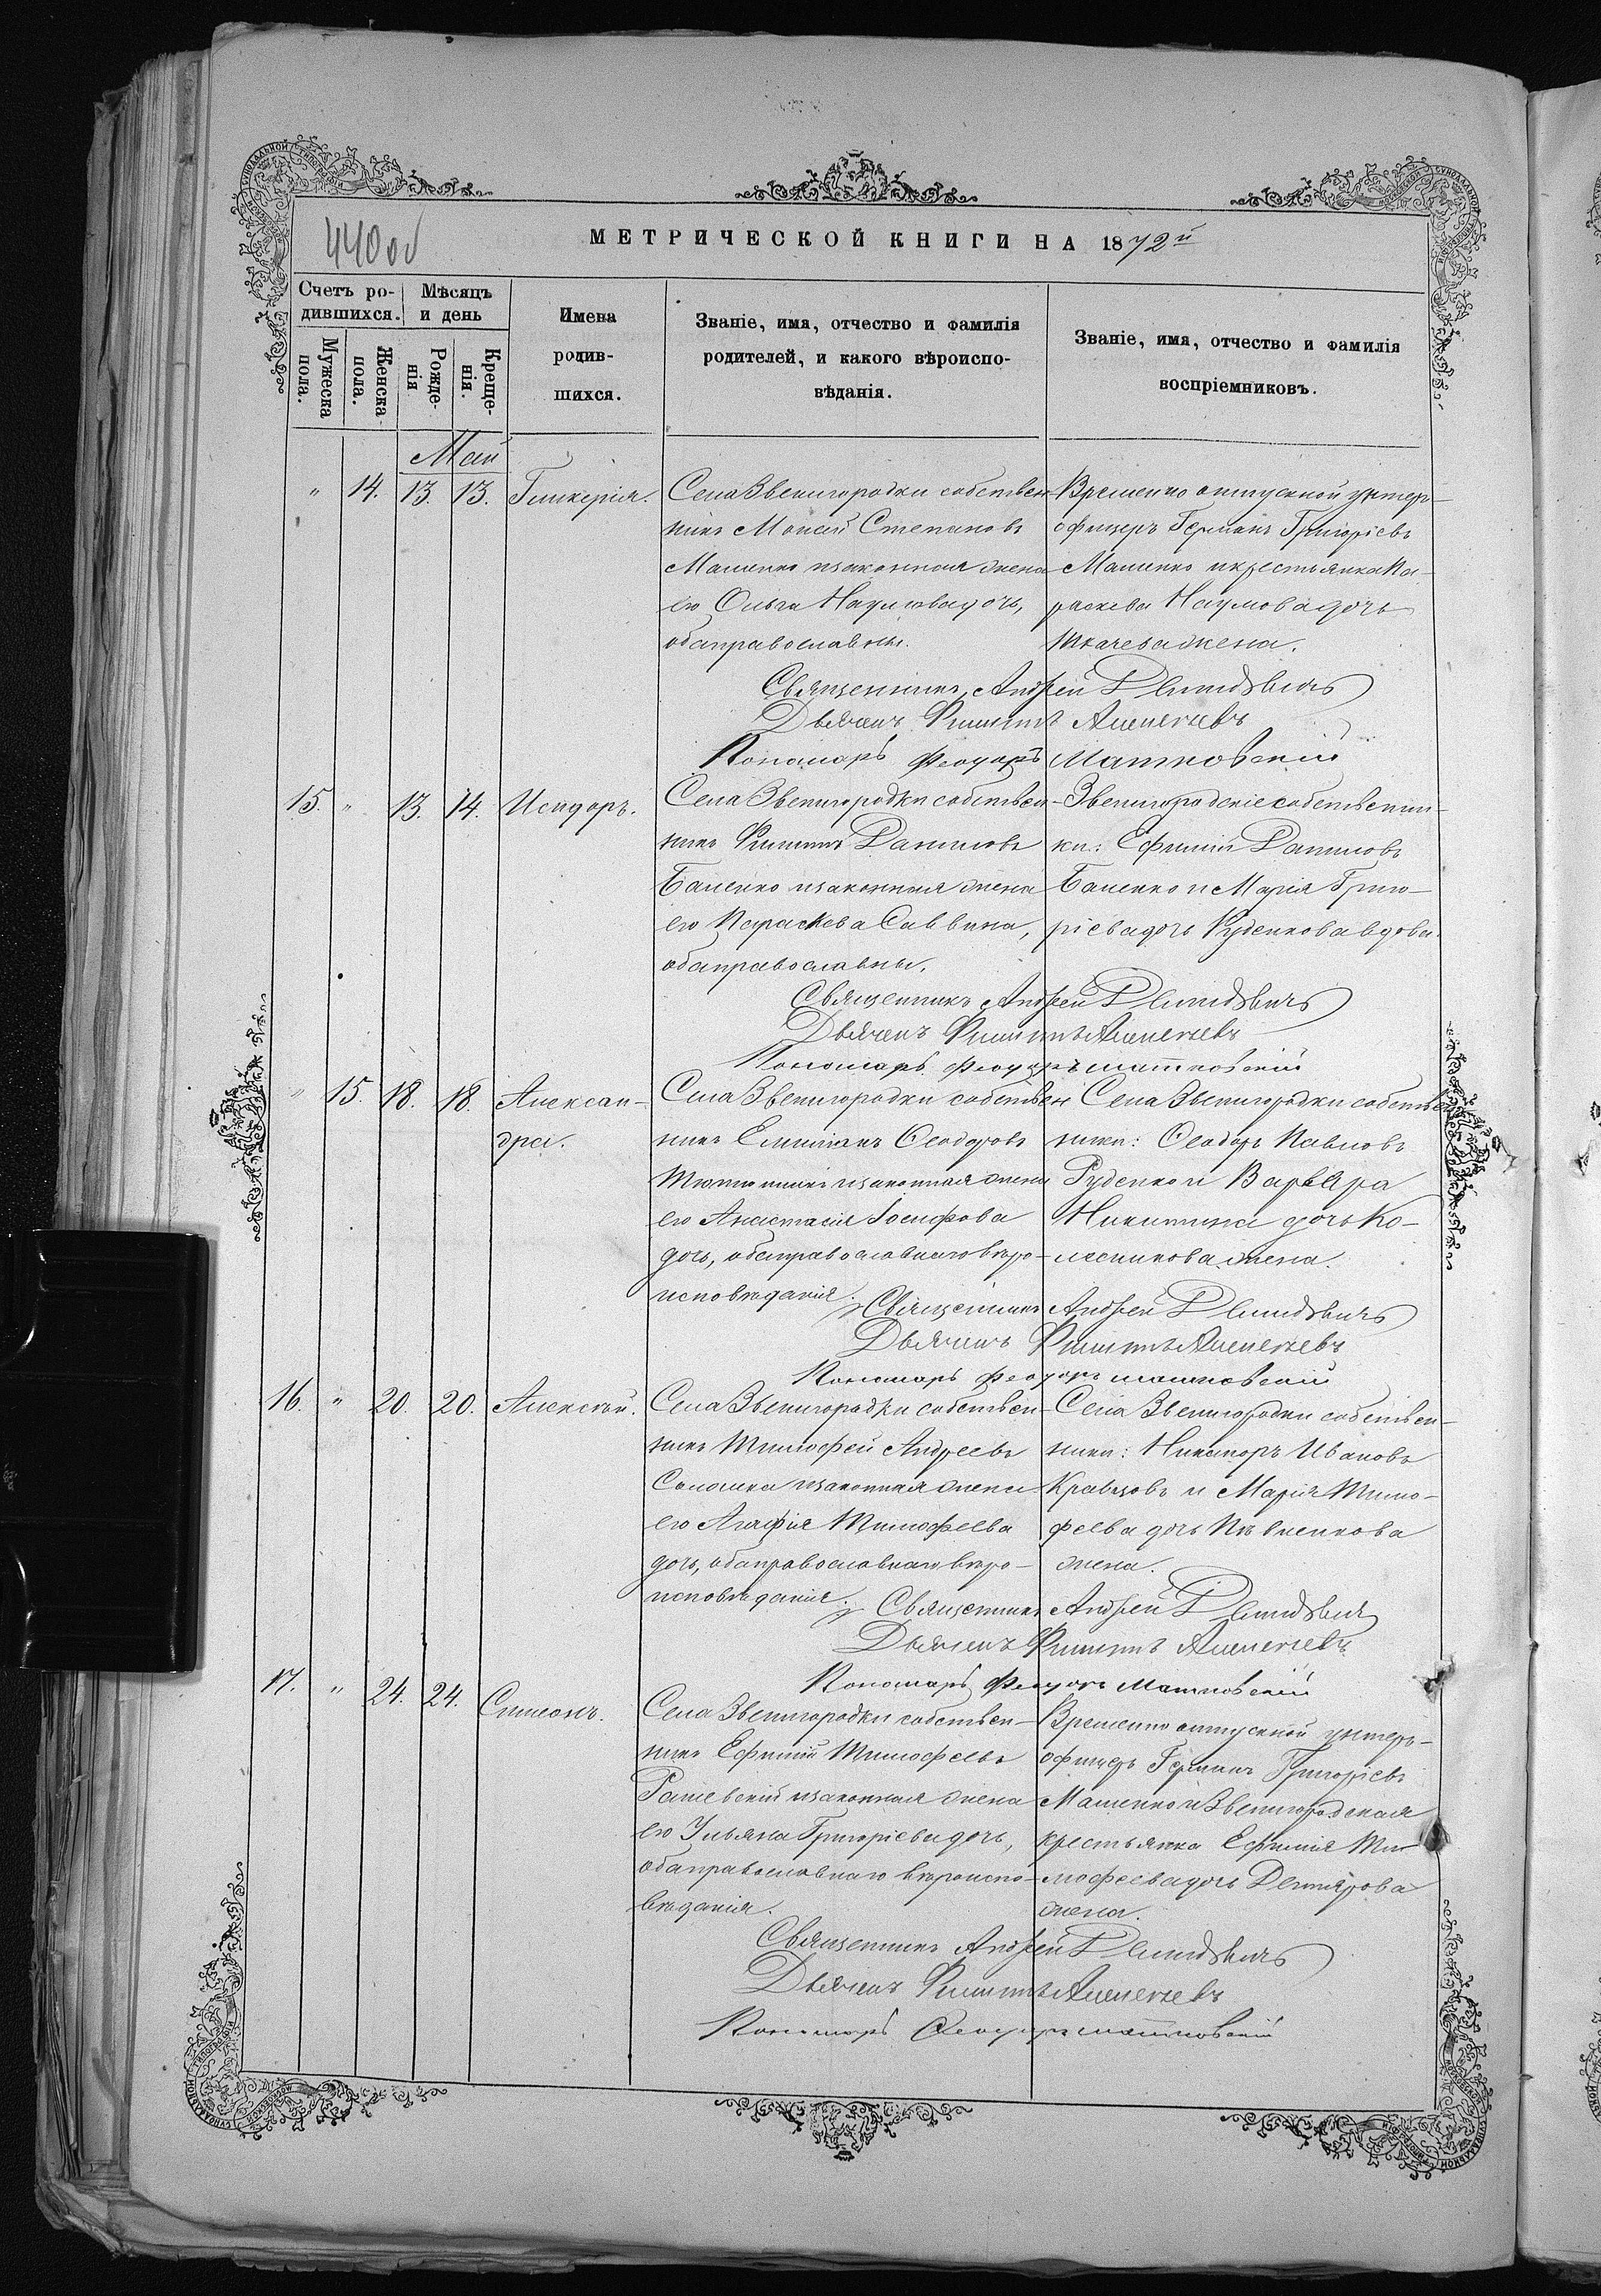 440 об
МЕТРИЧЕСКОЙ КНИГИ НА 1872й
Счетъ ро-
дившихся.
Мѣсяцъ
и день
Мужеска пола.
Женска пола.
Рожде-
нія
Креще-
нія.
Имена
родив-
шихся.
Званіе, имя, отчество и фамилія
родителей, и какого вѣроиспо-
вѣданія.
Званіе, имя, отчество и фамилія
воспріемниковъ.
Май
" 14. 13. 13. Гликерія.
Села Звенигородки собствен-
никъ Моисей Степановъ
Машенко и законная жена
его Ольга Наумова дочь,
оба православны.
Временно отпускной унтер-
офицеръ Германъ Григоріевъ
Машенко и крестьянка Па-
раскева Наумова дочь
Ткачева жена.
Священникъ Андрей
Дьячекъ Филиппъ Алексѣевъ
Пономарь Феодоръ Матковскій
15. " 13. 14. Исидоръ.
Села Звенигородки собствен-
никъ Филиппъ Даниловъ
Баленко и законная жена
его Параскева Саввина,
оба православны.
Звенигородскіе собственни-
ки: Ефимій Даниловъ
Баленко и Марія Григо-
ріева дочь Руденкова вдова.
Священникъ Андрей
Дьячекъ Филиппъ Алексѣевъ
Пономарь Феодоръ Матковскій
" 15. 18. 18. Алексан-
дра.
Села Звенигородки собствен
никъ Емиліанъ Феодоровъ
Тютюнникъ и законная жена
его Анастасія Іосифова
дочь, оба православнаго вѣро-
исповѣданія.
Села Звенигородки собствен
ники: Феодоръ Павловъ
Руденко и Варвара
Никитина дочь Ко-
лесникова жена.
Священникъ Андрей
Дьячекъ Филиппъ Алексѣевъ
Пономарь Феодоръ Матковскій
16. " 20. 20. Алексѣй.
Села Звенигородки собствен-
никъ Тимофей Андреевъ
Соломка и законная жена
его Агафія Тимофеева
дочь, оба православнаго вѣро-
исповѣданія.
Села Звенигородки собствен-
ники: Никаноръ Ивановъ
Кравцовъ и Марія Тимо-
феева дочь
жена.
Священникъ Андрей
Дьячекъ Филиппъ Алексѣевъ
Пономарь Феодоръ Матковскій
17. " 24. 24. Симеонъ.
Села Звенигородки собствен-
никъ Ефимій Тимофеевъ
Рашевскій и законная жена
его Ульяна Григоріева дочь,
оба православнаго вѣроиспо-
вѣданія.
Временно отпускной унтеръ-
офицеръ Германъ Григоріевъ
Машенко и Звенигородская
крестьянка Ефимія Ти-
мофеева дочь
жена.
Священникъ Андрей
Дьячекъ Филиппъ Алексѣевъ
Пономарь Феодоръ Матковскій